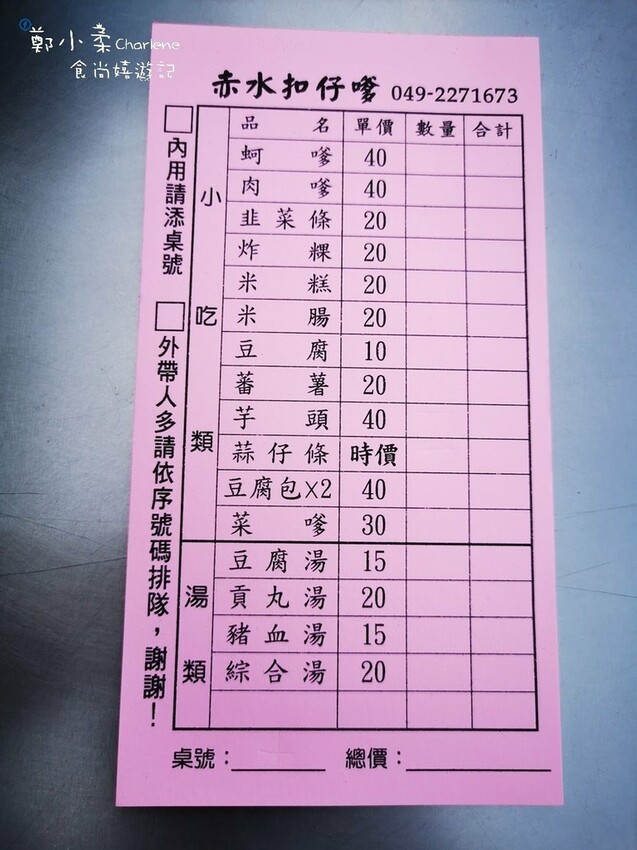 鄭小柔Charlene
食尚嬉遊記
赤水扣仔嗲 049-2271673
品名 單價 數量 合計
小吃類
蚵嗲 40
肉嗲 40
韭菜條 20
炸粿 20
米糕 20
米腸 20
豆腐 10
蕃薯 20
芋頭 40
蒜仔條 時價
豆腐包X2 40
菜嗲 30
湯類
豆腐湯 15
貢丸湯 20
豬血湯 15
綜合湯 20
內用請添桌號
外帶人多請依序號碼排隊，謝謝！
桌號：
總價：